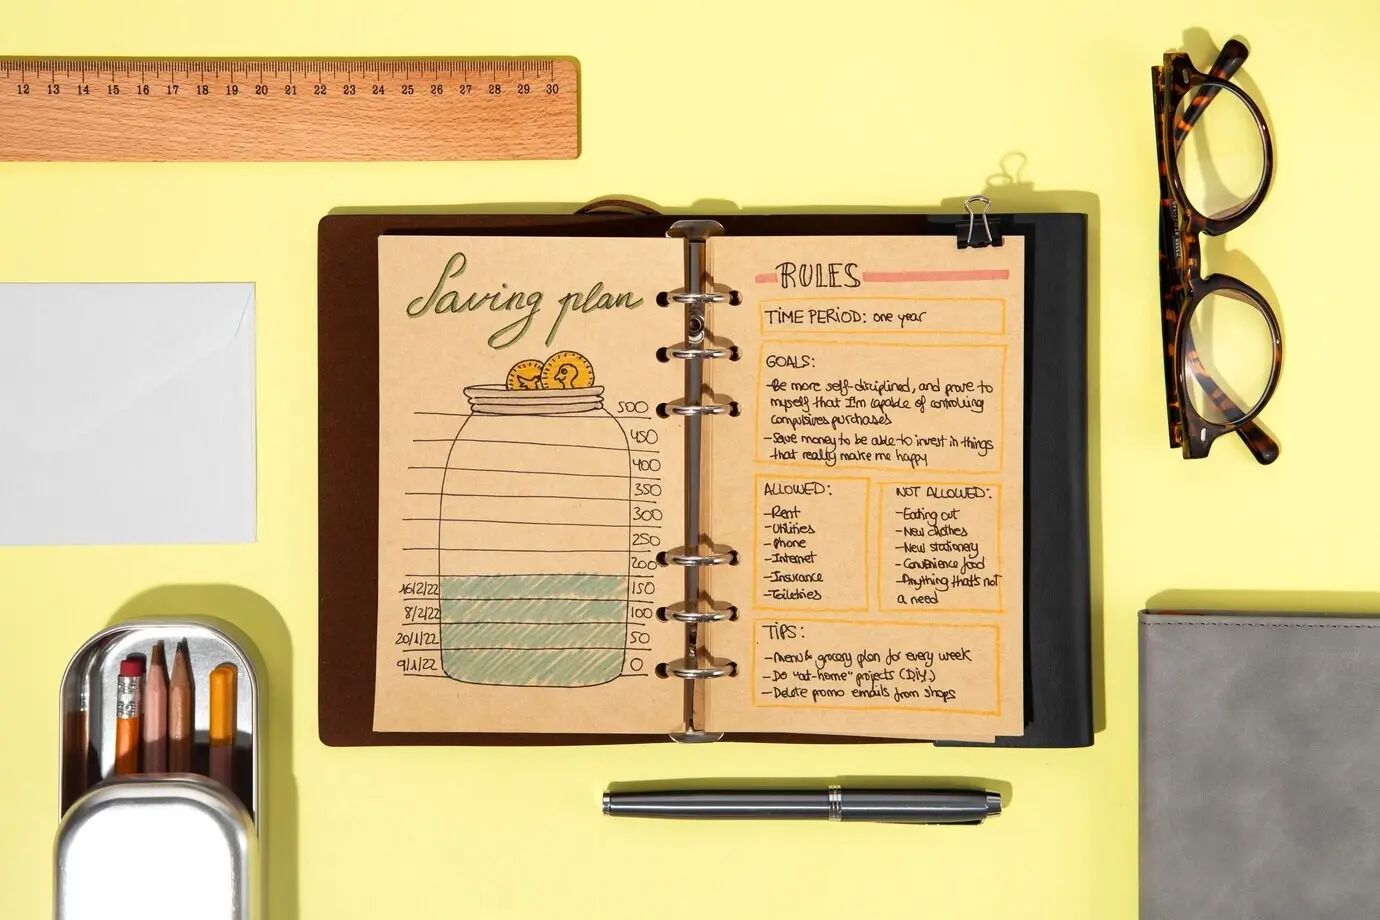 12 13 14 15 16 17 18 19 20 21 22 23 24 25 26 27 28 29 30
Saving plan
500
450
400
350
300
250
200
16/2/22 150
8/2/22 100
20/1/22 50
9/1/22 0
RULES
TIME PERIOD: one year
GOALS:
-Be more self-disciplined, and prove to
myself that I'm capable of controlling
compulsives purchases
-Save money to be able to invest in things
that really make me happy
ALLOWED:
-Rent
-Utilities
-Phone
-Internet
-Insurance
-Toiletries
NOT ALLOWED:
-Eating out
-New clothes
-New stationery
-Convenience food
-Anything that's not
a need
TIPS:
-Menu & grocery plan for every week
-Do "at-home" projects (D.I.Y.)
-Delete promo emails from shops